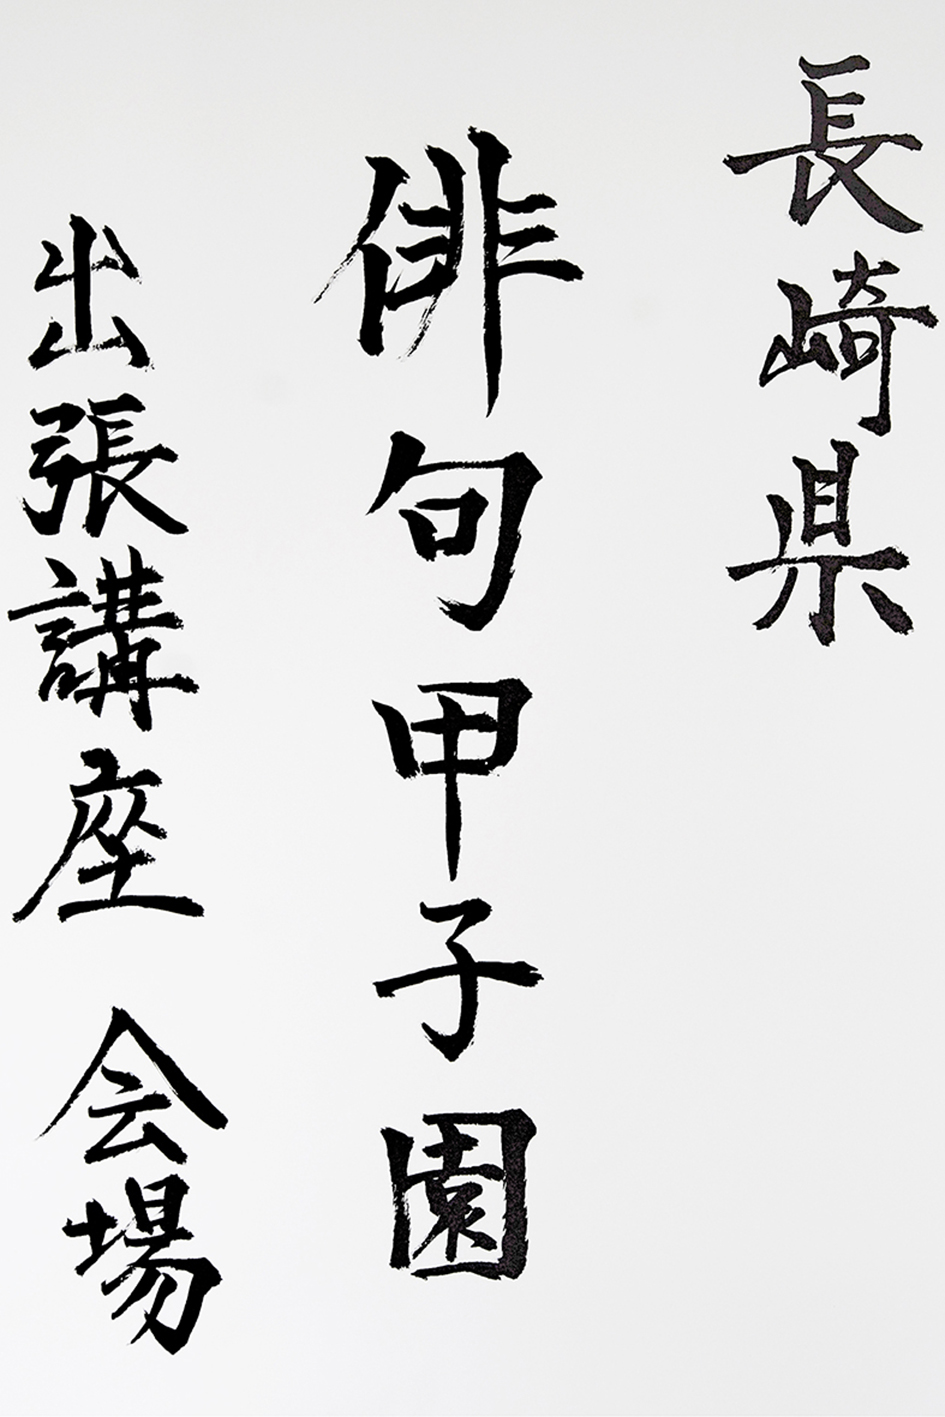 長崎県
俳句甲子園
出張講座 会場